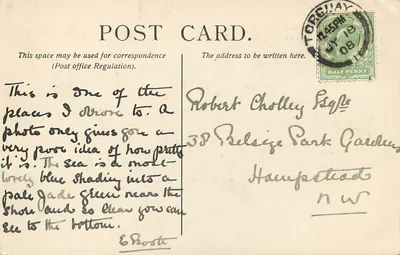 POST CARD.
This space may be used for correspondence
(Post office Regulation).
The address to be written here.
TORQUAY
7.45PM
MY 18
08
HALF PENNY
This is one of the
places I drove to. A
photo only gives you a
very poor idea of how pretty
it is. The sea is a most
lovely blue shading into a
pale Jade green near the
shore and so clear you can
see to the bottom.
E Booth
Robert Cholley Esqre
38 Belsize Park Gardens
Hampstead
N W